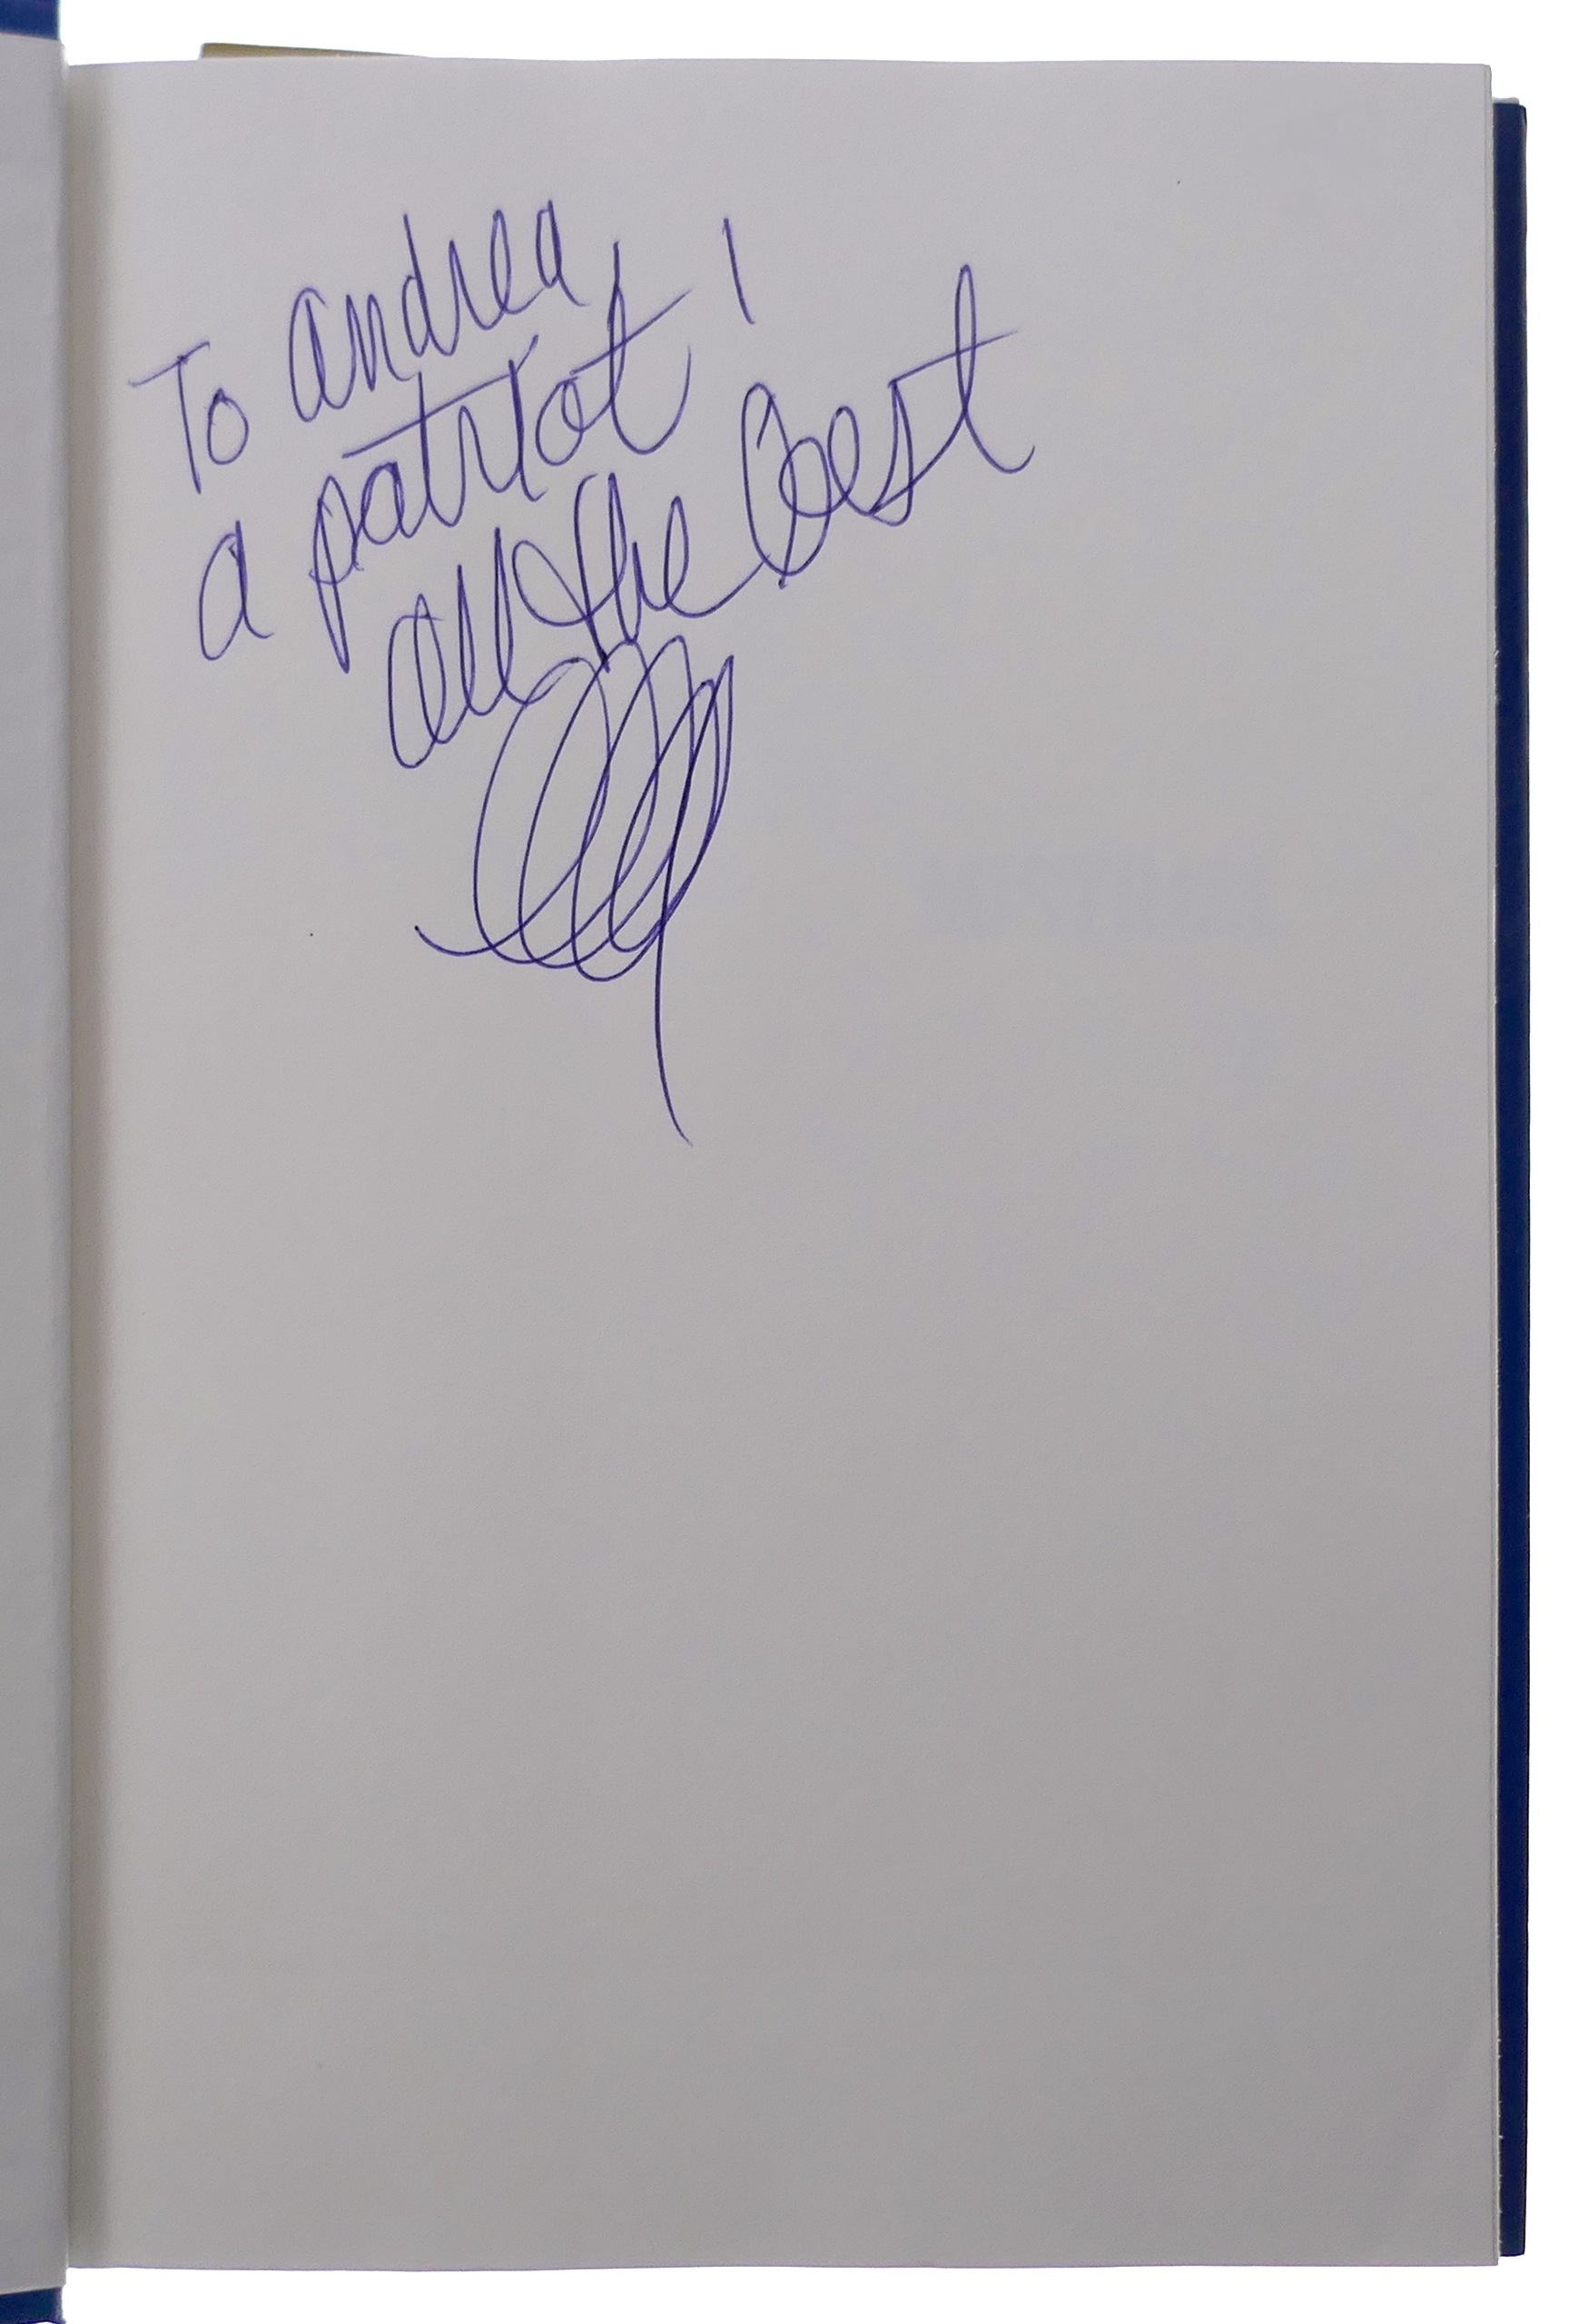 To Andrea
a patriot!
All the best